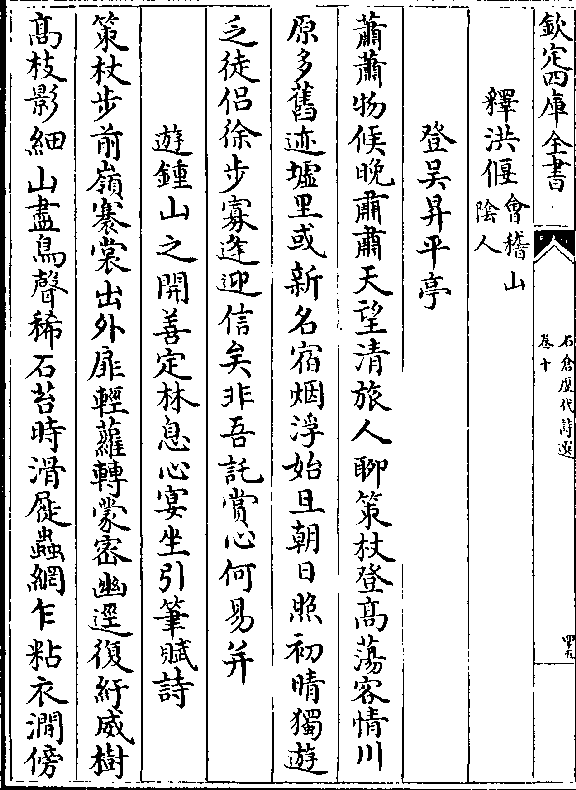 欽定四庫全書
石倉歷代詩選
卷十
四九
釋洪偃會稽山陰人
登吴昇平亭
蕭蕭物候晚肅肅天望清旅人聊策杖登髙蕩客情川
原多舊迹墟里或新名宿烟浮始旦朝日照初晴獨遊
乏徒侣徐步寡逢迎信矣非吾託賞心何易并
遊鍾山之開善定林息心宴坐引筆賦詩
策杖步前嶺褰裳出外扉輕蘿轉蒙密幽逕復紆威樹
髙枝影細山盡鳥聲稀石苔時滑屣蟲網乍粘衣澗傍